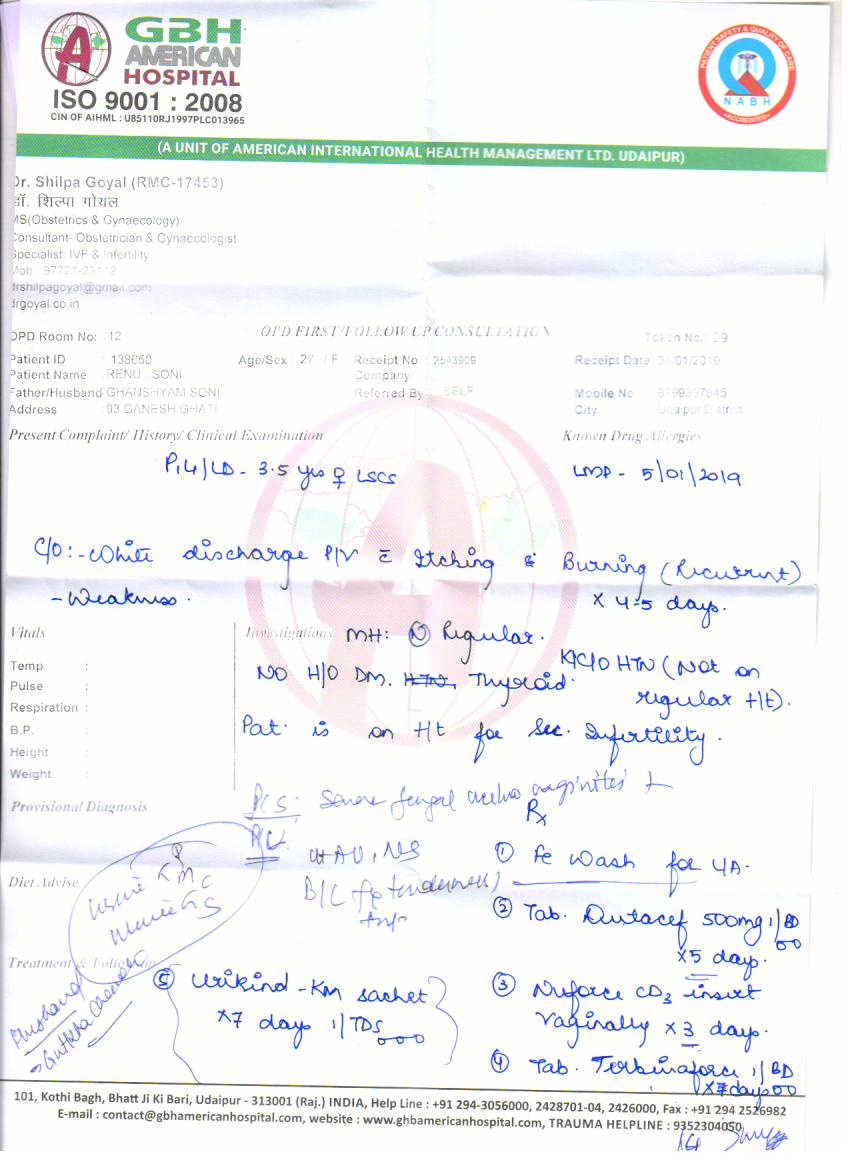 GBH
AMERICAN
HOSPITAL
ISO 9001 : 2008
CIN OF AIHML : U85110RJ1997PLC013965
PATIENT SAFETY & QUALITY OF CARE
NABH
ACCREDITED
(A UNIT OF AMERICAN INTERNATIONAL HEALTH MANAGEMENT LTD. UDAIPUR)
Dr. Shilpa Goyal (RMC-17453)
डॉ. शिल्पा गोयल
MS(Obstetrics & Gynaecology)
Consultant- Obstetrician & Gynaecologist
Specialist: IVF & Infertility
Mob 97721-23112
drshilpagoyal@gmail.com
drgoyal.co.in
OPD Room No: 12 OPD FIRST/FOLLOW UP CONSULTATION Token No.: 29
Patient ID : 138650 Age/Sex : 27 / F Receipt No : 2543909 Receipt Date 31/01/2019
Patient Name : RENU . SONI Company
Father/Husband GHANSHYAM.SONI Referred By : SELF Mobile No 9799397945
Address : 93 GANESH GHATI City Udaipur District
Present Complaint/ History/ Clinical Examination Known Drug Allergies
P1L1/LD - 3.5 yrs ♀ LSCS LMP - 5/01/2019
C/O :- White discharge P/V c̄ Itching & Burning (Recurrent)
- Weakness. x 4-5 days.
Vitals Investigations MH: Ⓝ Regular.
Temp :
Pulse :
Respiration :
B.P. :
Height :
Weight :
K/C/O HTN (Not on
NO H/O DM. HTN, Thyroid. regular t/t).
Pat. is on t/t for Sec. Infertility.
Provisional Diagnosis
P/S: Severe fungal vaginitis +
Rx
P/V
UT AV, NS
B/L fx tenderness
① Fe Wash for LA.
Diet Advise
② Tab. 500mg 1/BD
x5 days.
Treatment & Follow
③ Nuforce CD3 insert
Vaginally x 3 days.
④ Tab. Terbinaforce 1/BD
x7 days
⑤ Urikind-KM sachet
x7 days 1/TDS
Husband
101, Kothi Bagh, Bhatt Ji Ki Bari, Udaipur - 313001 (Raj.) INDIA, Help Line : +91 294-3056000, 2428701-04, 2426000, Fax : +91 294 2526982
E-mail : contact@gbhamericanhospital.com, website : www.ghbamericanhospital.com, TRAUMA HELPLINE : 9352304050